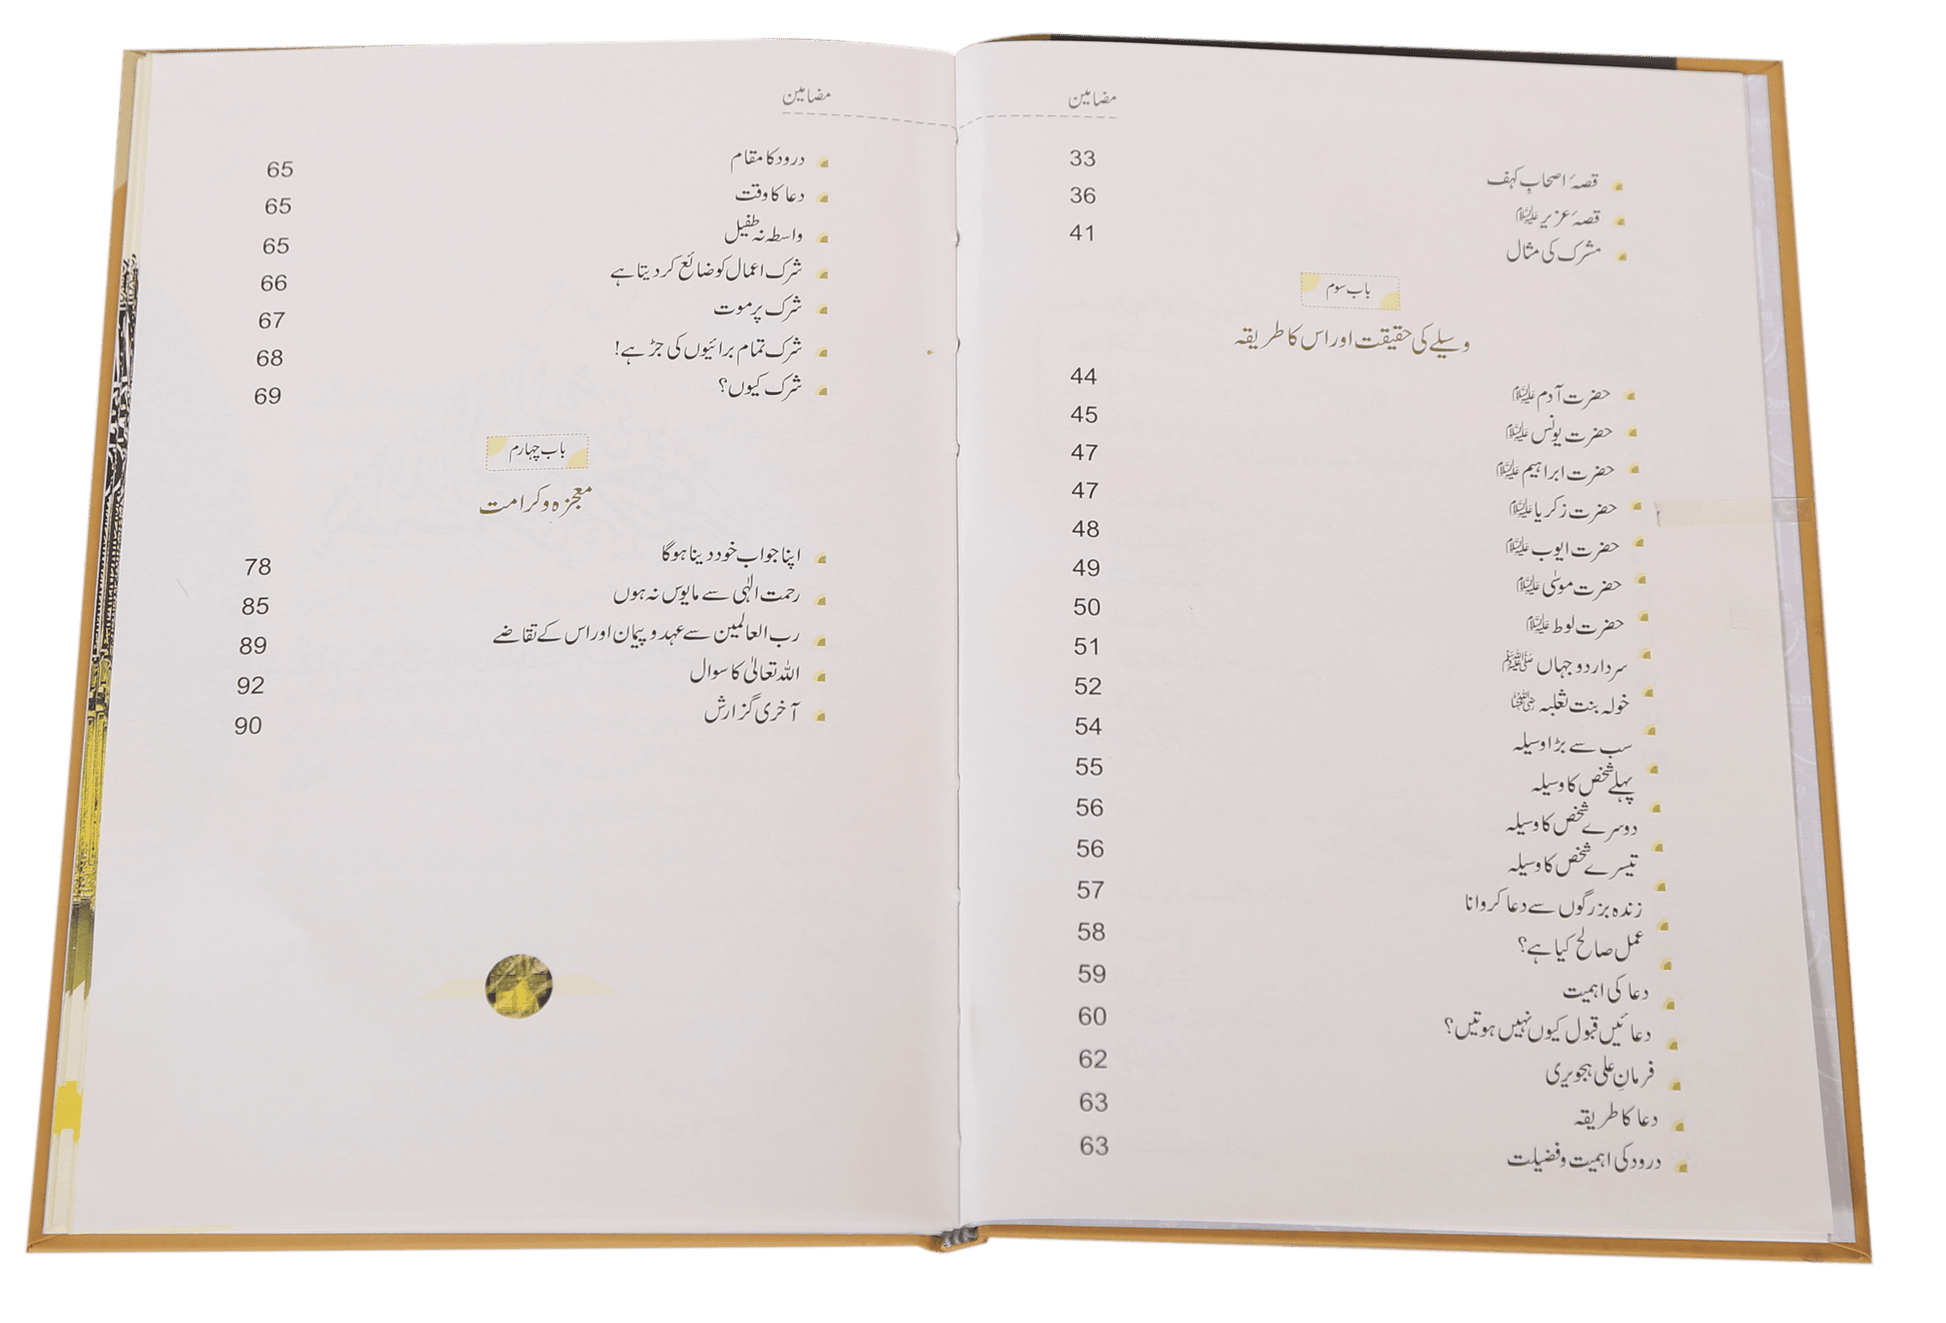 مضامین
قصۂ اصحابِ کہف 33
قصۂ عزیر علیہ السلام 36
مشرک کی مثال 41
باب سوم
وسیلے کی حقیقت اور اس کا طریقہ
حضرت آدم علیہ السلام 44
حضرت یونس علیہ السلام 45
حضرت ابراہیم علیہ السلام 47
حضرت زکریا علیہ السلام 47
حضرت ایوب علیہ السلام 48
حضرت موسیٰ علیہ السلام 49
حضرت لوط علیہ السلام 50
سردار دو جہاں ﷺ 51
خولہ بنت ثعلبہ رضی اللہ عنہا 52
سب سے بڑا وسیلہ 54
پہلے شخص کا وسیلہ 55
دوسرے شخص کا وسیلہ 56
تیسرے شخص کا وسیلہ 56
زندہ بزرگوں سے دعا کروانا 57
عمل صالح کیا ہے؟ 58
دعا کی اہمیت 59
دعائیں قبول کیوں نہیں ہوتیں؟ 60
فرمانِ علی ہجویری 62
دعا کا طریقہ 63
درود کی اہمیت و فضیلت 63
مضامین
درود کا مقام 65
دعا کا وقت 65
واسطہ نہ طفیل 65
شرک اعمال کو ضائع کر دیتا ہے 66
شرک پر موت 67
شرک تمام برائیوں کی جڑ ہے! 68
شرک کیوں؟ 69
باب چہارم
معجزہ و کرامت
اپنا جواب خود دینا ہوگا 78
رحمت الٰہی سے مایوس نہ ہوں 85
رب العالمین سے عہد و پیمان اور اس کے تقاضے 89
اللہ تعالیٰ کا سوال 92
آخری گزارش 90